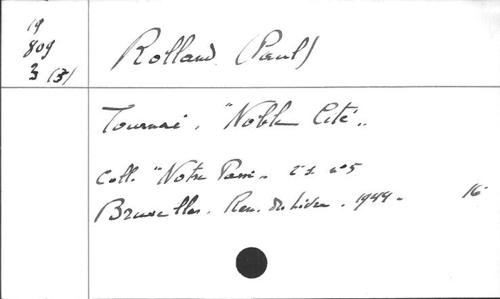 19
809
3 (5)
Rolland (Paul)
Tournai. "Noble Cité".
Coll. "Notre Passé". n° 5
Bruxelles. Ren. du Livre. 1944. 16